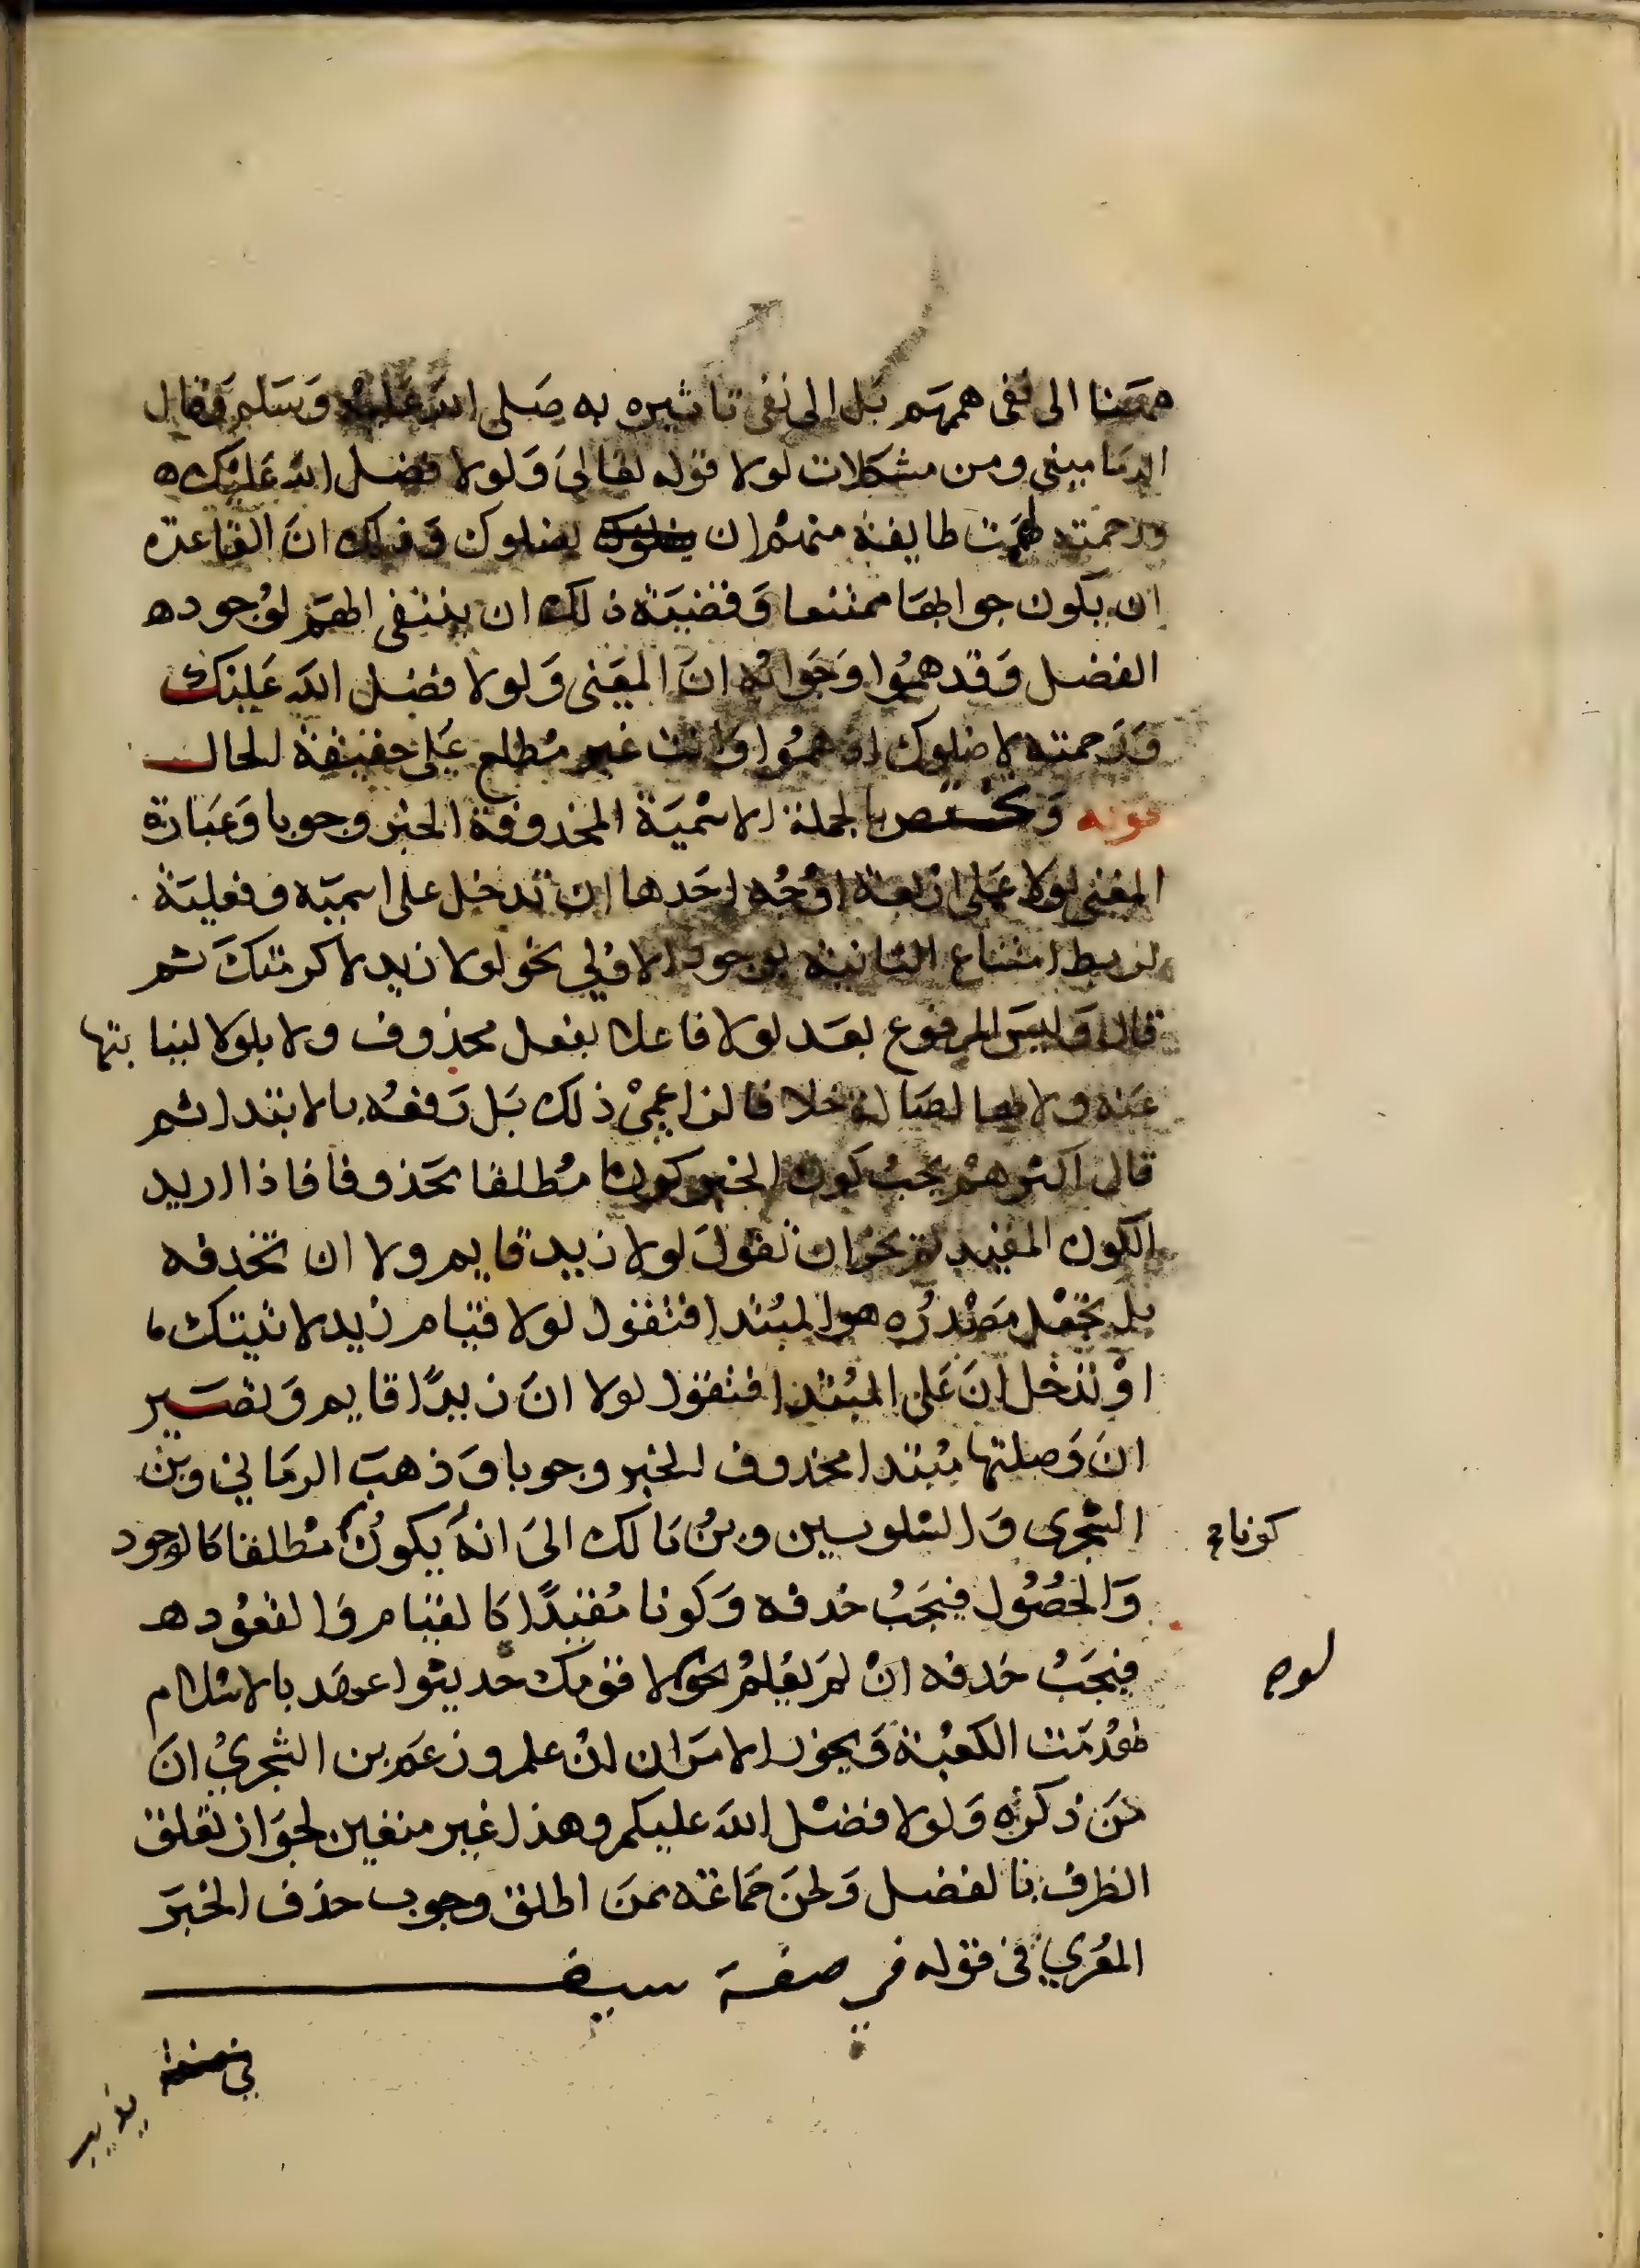 همتنا الى نفى هممهم بل الى نفى تاثيره به صلى الله عليه وسلم وقال
الدمامينى ومن مشكلات لولا قوله تعالى ولولا فضل الله عليك
ورحمته لهمت طايفة منهم ان يضلوك وذلك ان القاعدة
ان يكون جوابها ممتنعا وقضية ذلك ان ينتفى الهم لوجود
الفضل وقد هموا وجوابه ان المعنى ولولا فضل الله عليك
ورحمته لاضلوك اذ هموا وانت غير مطلع على حقيقة الحال
قوله وتختص بالجملة الاسمية المحذوفة الخبر وجوبا وعبارة
المغنى لولا على اربعة اوجه احدها ان تدخل على اسمية وفعلية
لربط امتناع الثانية بوجود الاولى نحو لولا زيد لاكرمتك ثم
قال وليس المرفوع بعد لولا فاعلا بفعل محذوف ولا بلولا لنيابتها
عنه ولا بها اصالة خلافا لزاعمى ذلك بل رفعه بالابتدا ثم
قال اكثرهم يجب كون الخبر كونا مطلقا محذوفا فاذا اريد
الكون المقيد لم يجز ان تقول لولا زيد قايم ولا ان تحذفه
بل تجعل مصدره هو المبتدا فتقول لولا قيام زيد لاتيتك
او تدخل ان على المبتدا فتقول لولا ان زيدًا قايم وتصير
ان وصلتها مبتدا محذوف الخبر وجوبا وذهب الرمانى وبن
الشجرى والشلوبين وبن مالك الى انه يكون مطلقا كالوجود
كونا
والحصول فيجب حذفه وكونا مقيدًا كالقيام والقعود
فيجب حذفه ان لم يعلم نحو لولا قومك حديثوا عهد بالاسلام
لهدمت الكعبة ويجوز الامران ان علم وزعم بن الشجرى ان
من ذكره ولولا فضل الله عليكم وهذا غير متعين لجواز تعلق
الظرف بالفضل ولحن جماعة ممن اطلق وجوب حذف الخبر
المعري فى قوله فى صفة سيف
يذيب